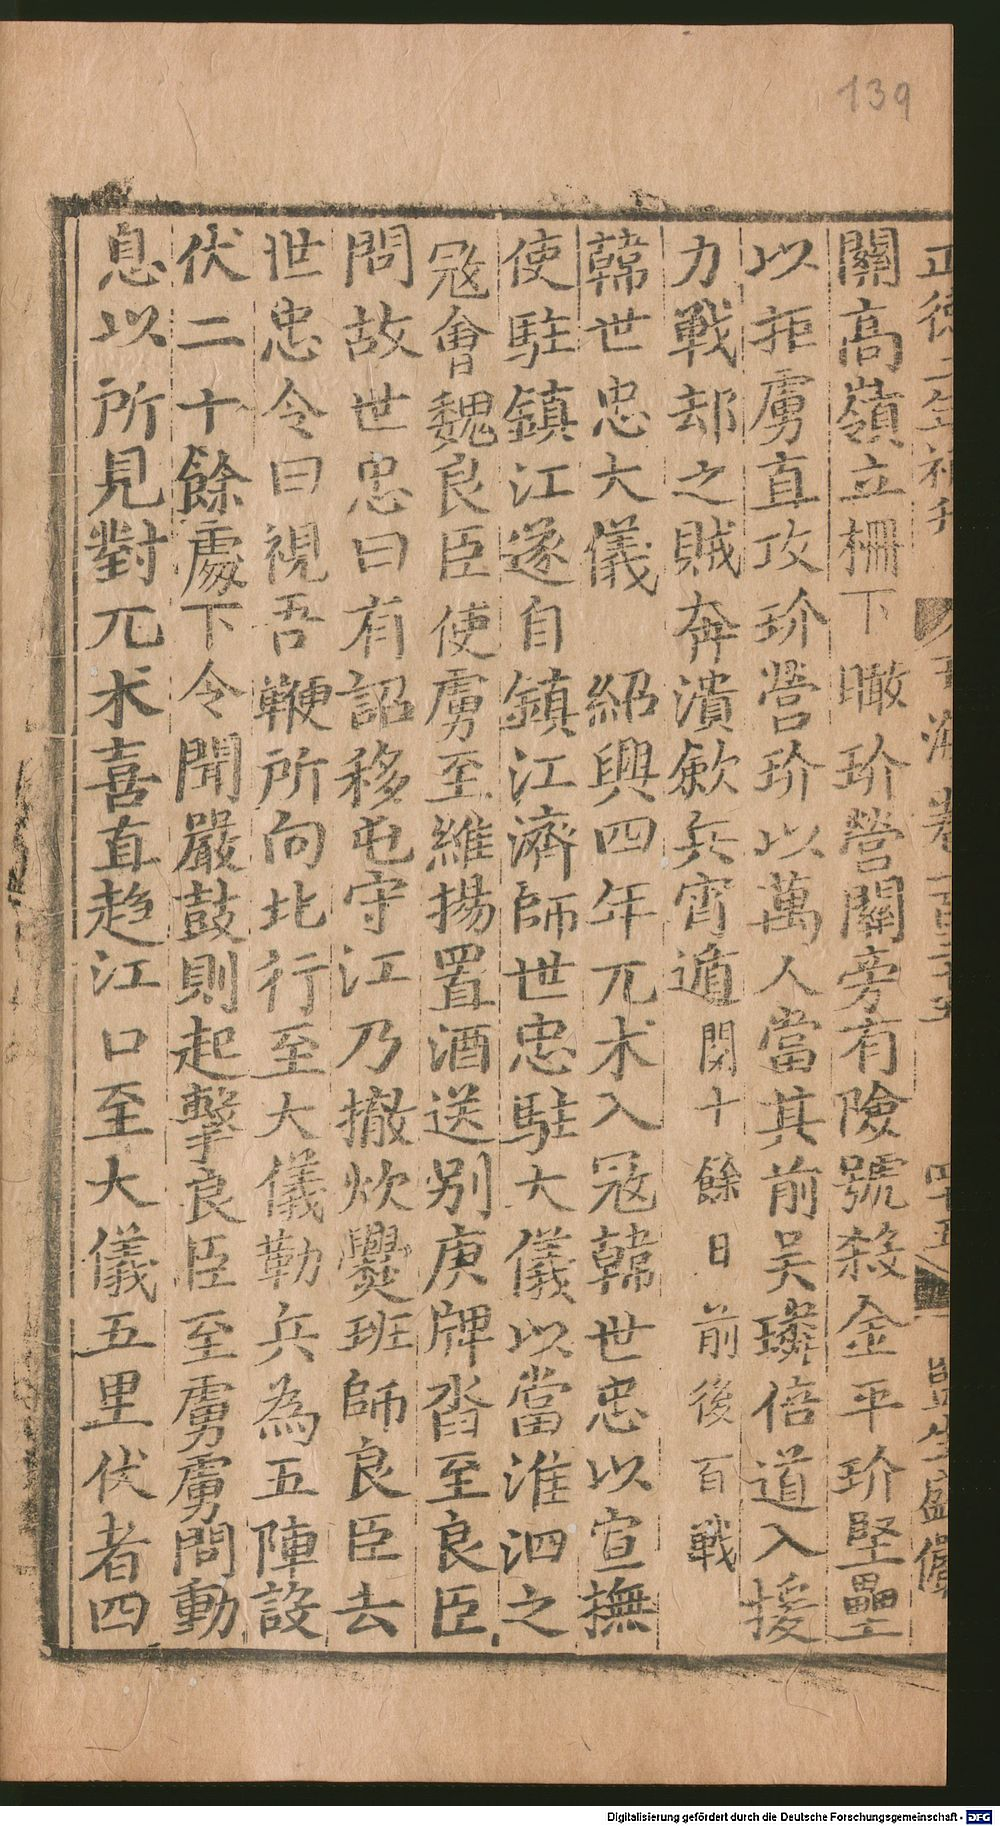 139
正德二年補刊 玉海卷一百三十五 四十五
關高嶺立柵下瞰玠營關旁有險號殺金平玠堅壘
以拒虜直攻玠營玠以萬人當其前吴璘倍道入援
力戰却之賊奔潰歛兵宵遁閱十餘日前後百戰
韓世忠大儀 紹興四年兀朮入寇韓世忠以宣撫
使駐鎮江遂自鎮江濟師世忠駐大儀以當淮泗之
寇會魏良臣使虜至維揚置酒送别庚牌沓至良臣
問故世忠曰有詔移屯守江乃撤炊爨班師良臣去
世忠令曰視吾鞭所向北行至大儀勒兵為五陣設
伏二十餘處下令聞嚴鼓則起擊良臣至虜虜問動
息以所見對兀朮喜直趋江口至大儀五里伏者四
Digitalisierung gefördert durch die Deutsche Forschungsgemeinschaft - DFG